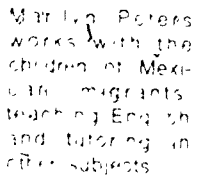 Marilyn Peters
works with the
children of Mexi-
can migrants
teaching English
and tutoring in
other subjects